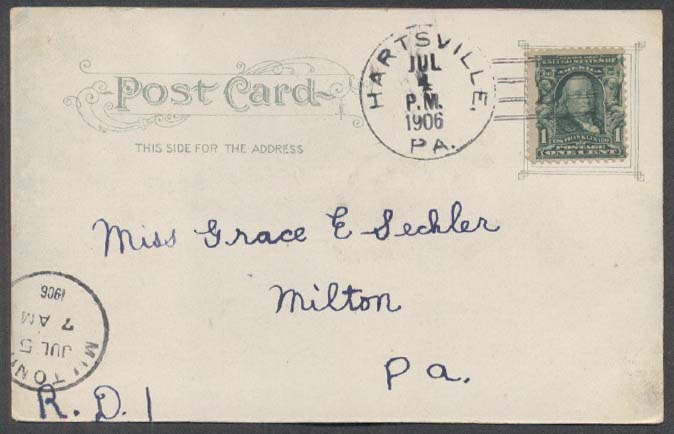 Post Card
THIS SIDE FOR THE ADDRESS
HARTSVILLE,
JUL
4
P.M.
1906
PA.
UNITED STATES OF
AMERICA
1 1
POSTAGE
ONE CENT
Miss Grace E Sechler
Milton
Pa.
MILTON
JUL 5
7 AM
1906
R.D.1